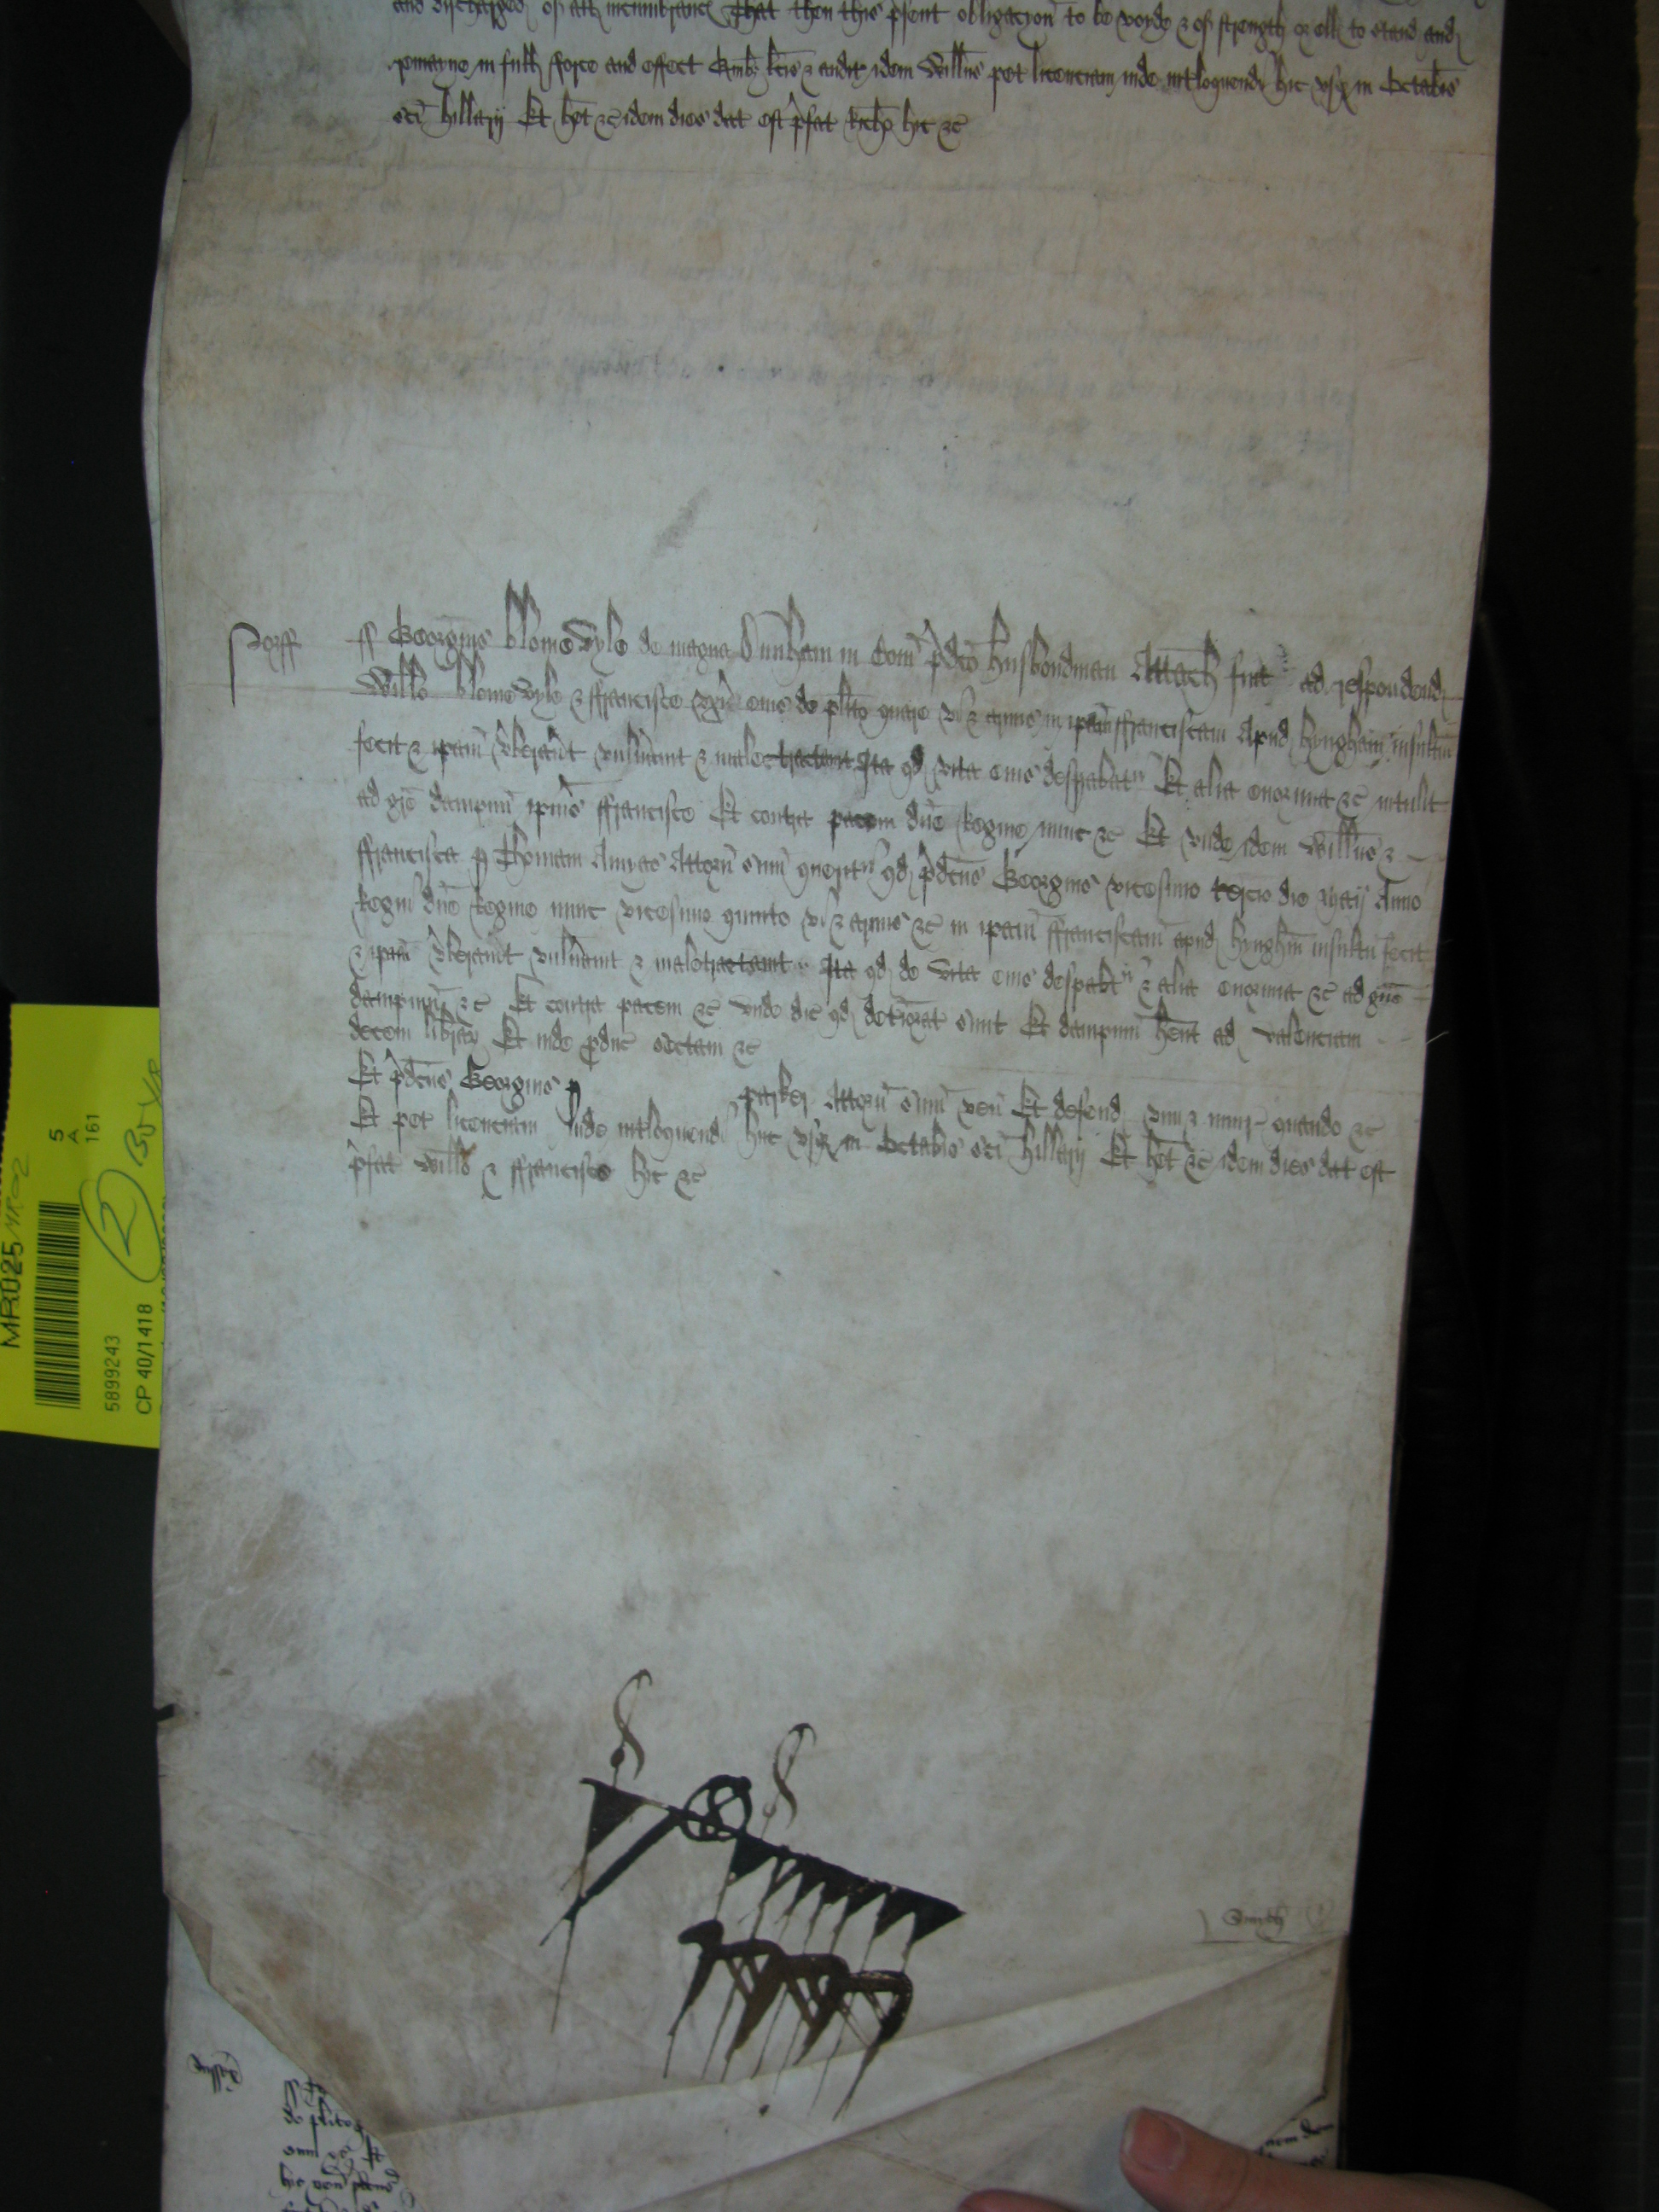 and discharged of all incumbranc That then this p'sent obligacion to be voyde & of strength or ells to stand and
remayne in full fforce and effect Quib3 lc̃is & audit idem Will̃us pet licenciam inde int'loquend hic usq in Octabis
sc̃i Hillarij Et h̃et &c̃ idem dies dat est p'fat Ric̃o hic &c̃
Norff
ff Georgius Blomevyle de magna Dunham in Com̃ p'd̃co husbondman Attach fuit ad respondend
Will̃o Blomevyle & ffrancisce ux̃i eius de pl̃ito quare vi & armis in ipam̃ ffranciscam Apud hyngham insultũ
fecit & ipam̃ v'berauit vuln'auit & maletractauit Ita qd vita eius desp'abat Et alia enormia &c̃ intulit
ad g̃ve dampnũ ipius ffrancisce Et contra pacem dñe Regine nunc &c̃ Et unde idem Will̃us &
ffrancisca p Thomam Amyas Attorñ suũ querunt qd p'd̃cus Georgius vicesimo tercio die Maij Anno
Regni dñe Regine nunc vicesimo quinto vi & armis &c̃ in ipam̃ ffranciscam̃ apud hynghm̃ insultũ fecit
& ipam̃ v'berauit vuln'auit & maletractauit Ita qd de vita eius desp'abt̃ & alia enormia &c̃ ad g̃ve
dampnũ &c̃ Et contra pacem &c̃ unde dic̃ qd det'iorat sunt Et dampnũ h̃ent ad valenciam
decem librar Et inde p'duc̃ sectam &c̃
Et p'd̃cus Georgius p Parker Attorñ suũ veñ Et defend vim & iniur quando &c̃
Et pet licenciam inde int'loquend hic usq in Octabis sc̃i Hillarij Et h̃et &c̃ idem dies dat est
p'fat Will̃o & ffrancisce hic &c̃
Smyth
MR025 MR02
5
A
161
5899243
CP 40/1418
2
de pl̃ito